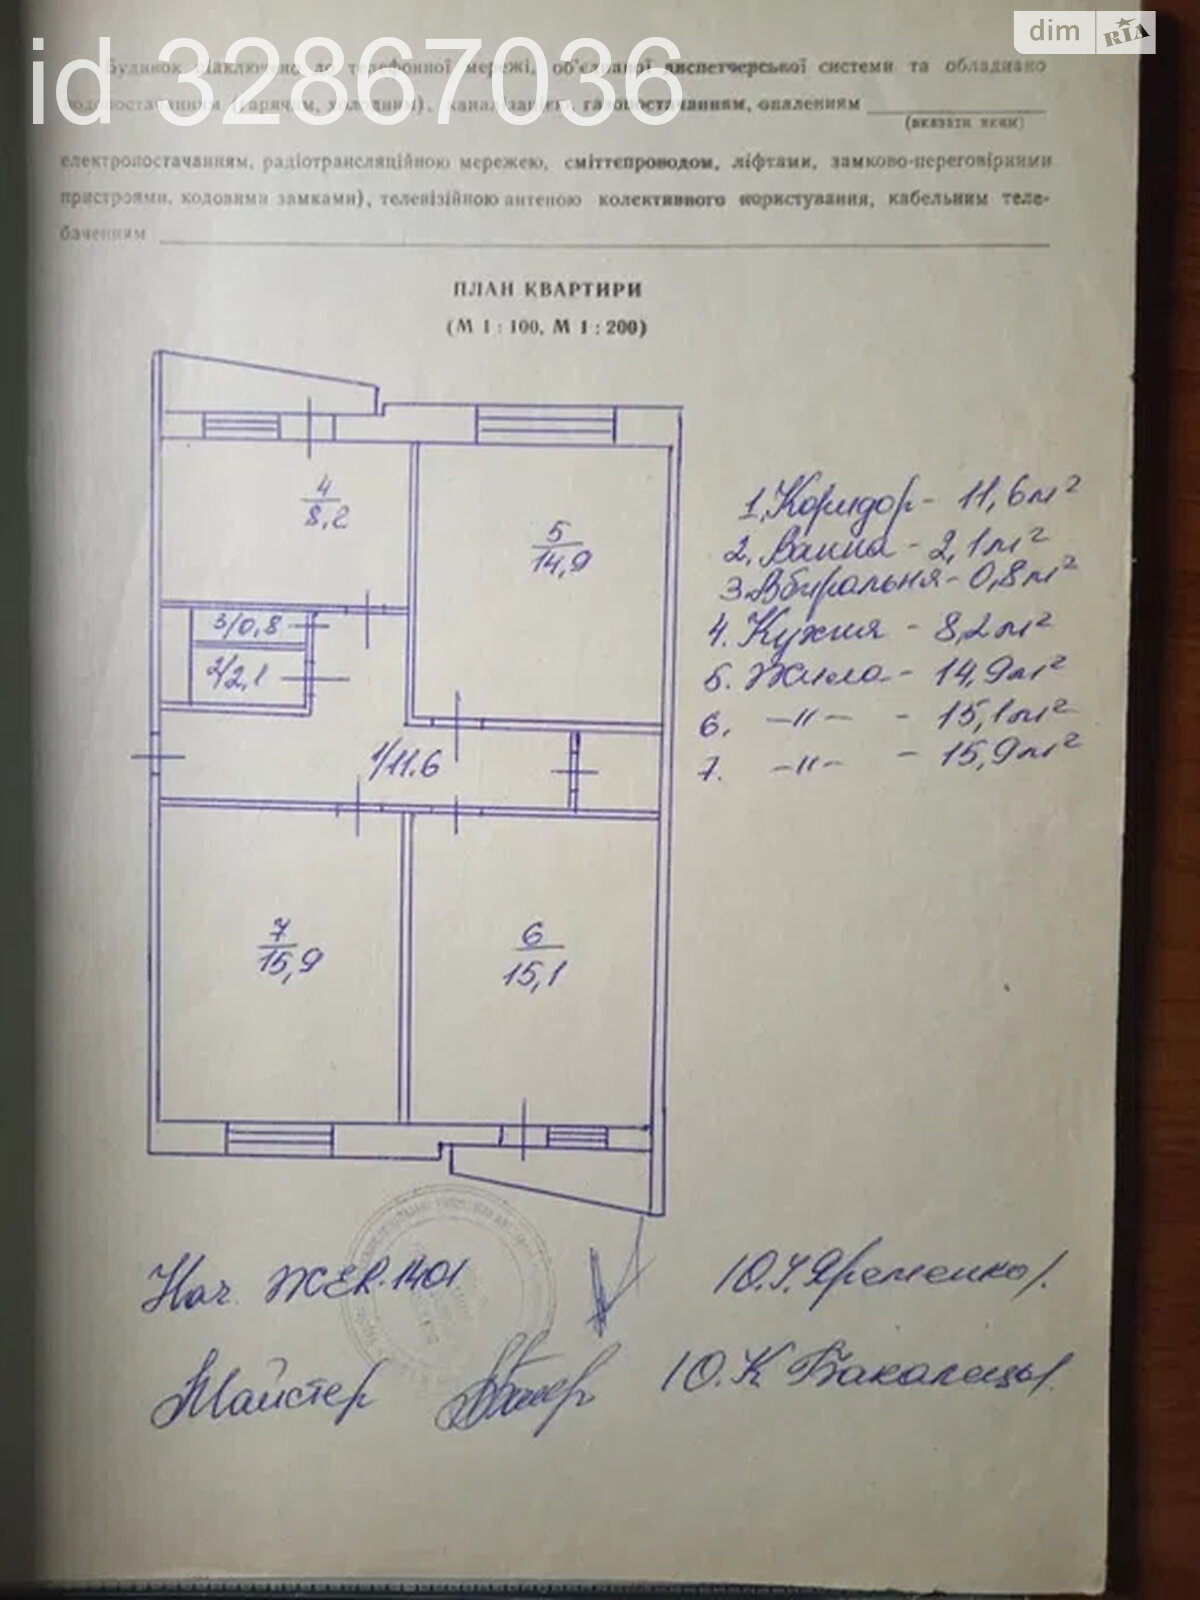 id 32867036
dim RIA
Будинок підключено до телефонної мережі, об'єднаної диспетчерської системи та обладнано
водопостачанням (гарячим, холодним), каналізацією, газопостачанням, опаленням
(вказати яким)
електропостачанням, радіотрансляційною мережею, сміттєпроводом, ліфтами, замково-переговірними
пристроями, кодовими замками), телевізійною антеною колективного користування, кабельним теле-
баченням
ПЛАН КВАРТИРИ
(М 1 : 100, М 1 : 200)
4
8,2
5
14,9
3/0,8
2/2,1
1/11.6
7
15,9
6
15,1
1. Коридор - 11,6 м²
2. Ванна - 2,1 м²
3. Вбиральня - 0,8 м²
4. Кухня - 8,2 м²
5. Жила - 14,9 м²
6. -"- - 15,1 м²
7. -"- - 15,9 м²
Нач. ЖЕК-1401 Ю.У.Яременко/.
Майстер Ю.К